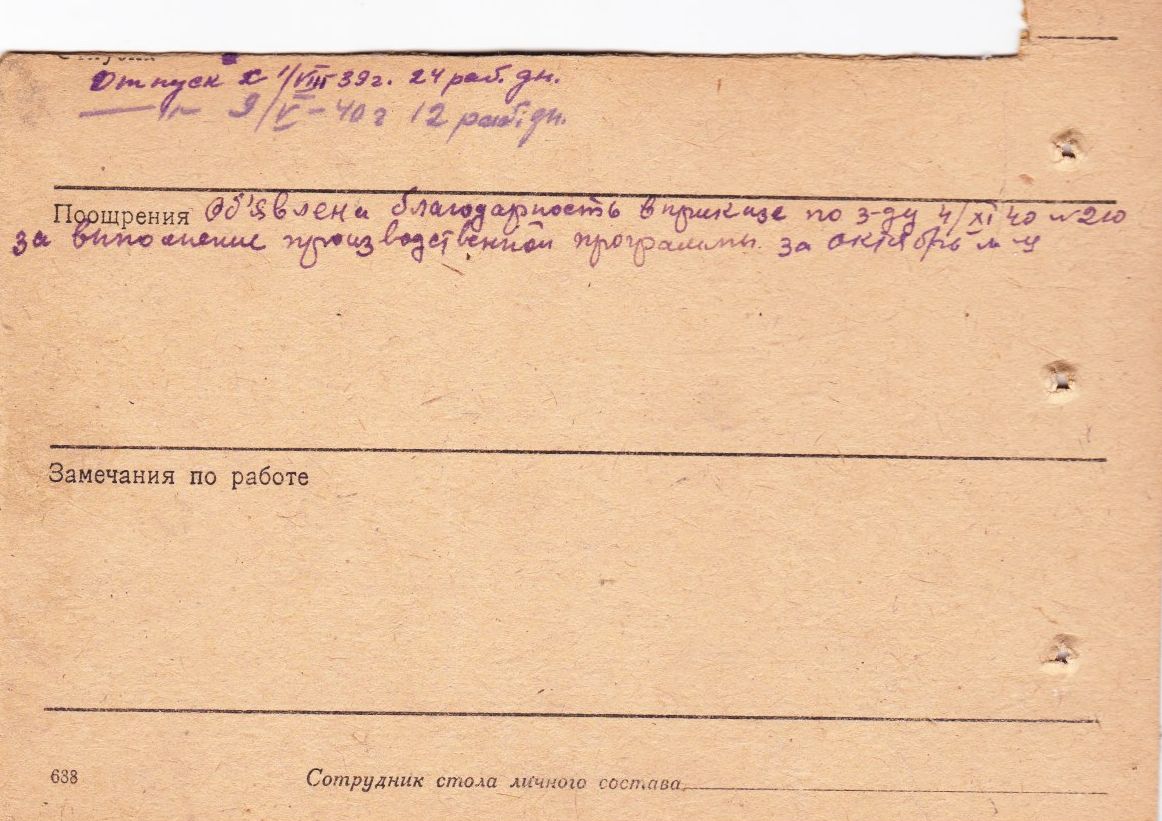 Отпуск с 1/VIII 39г. 24 раб. дн.
—— 〃 — 9/V – 40г 12 раб. дн.
Поощрения Об'явлена благодарность в приказе по з-ду 4/XI 40 №210
за выполнение производственной программы за октябрь м-ц
Замечания по работе
638 Сотрудник стола личного состава